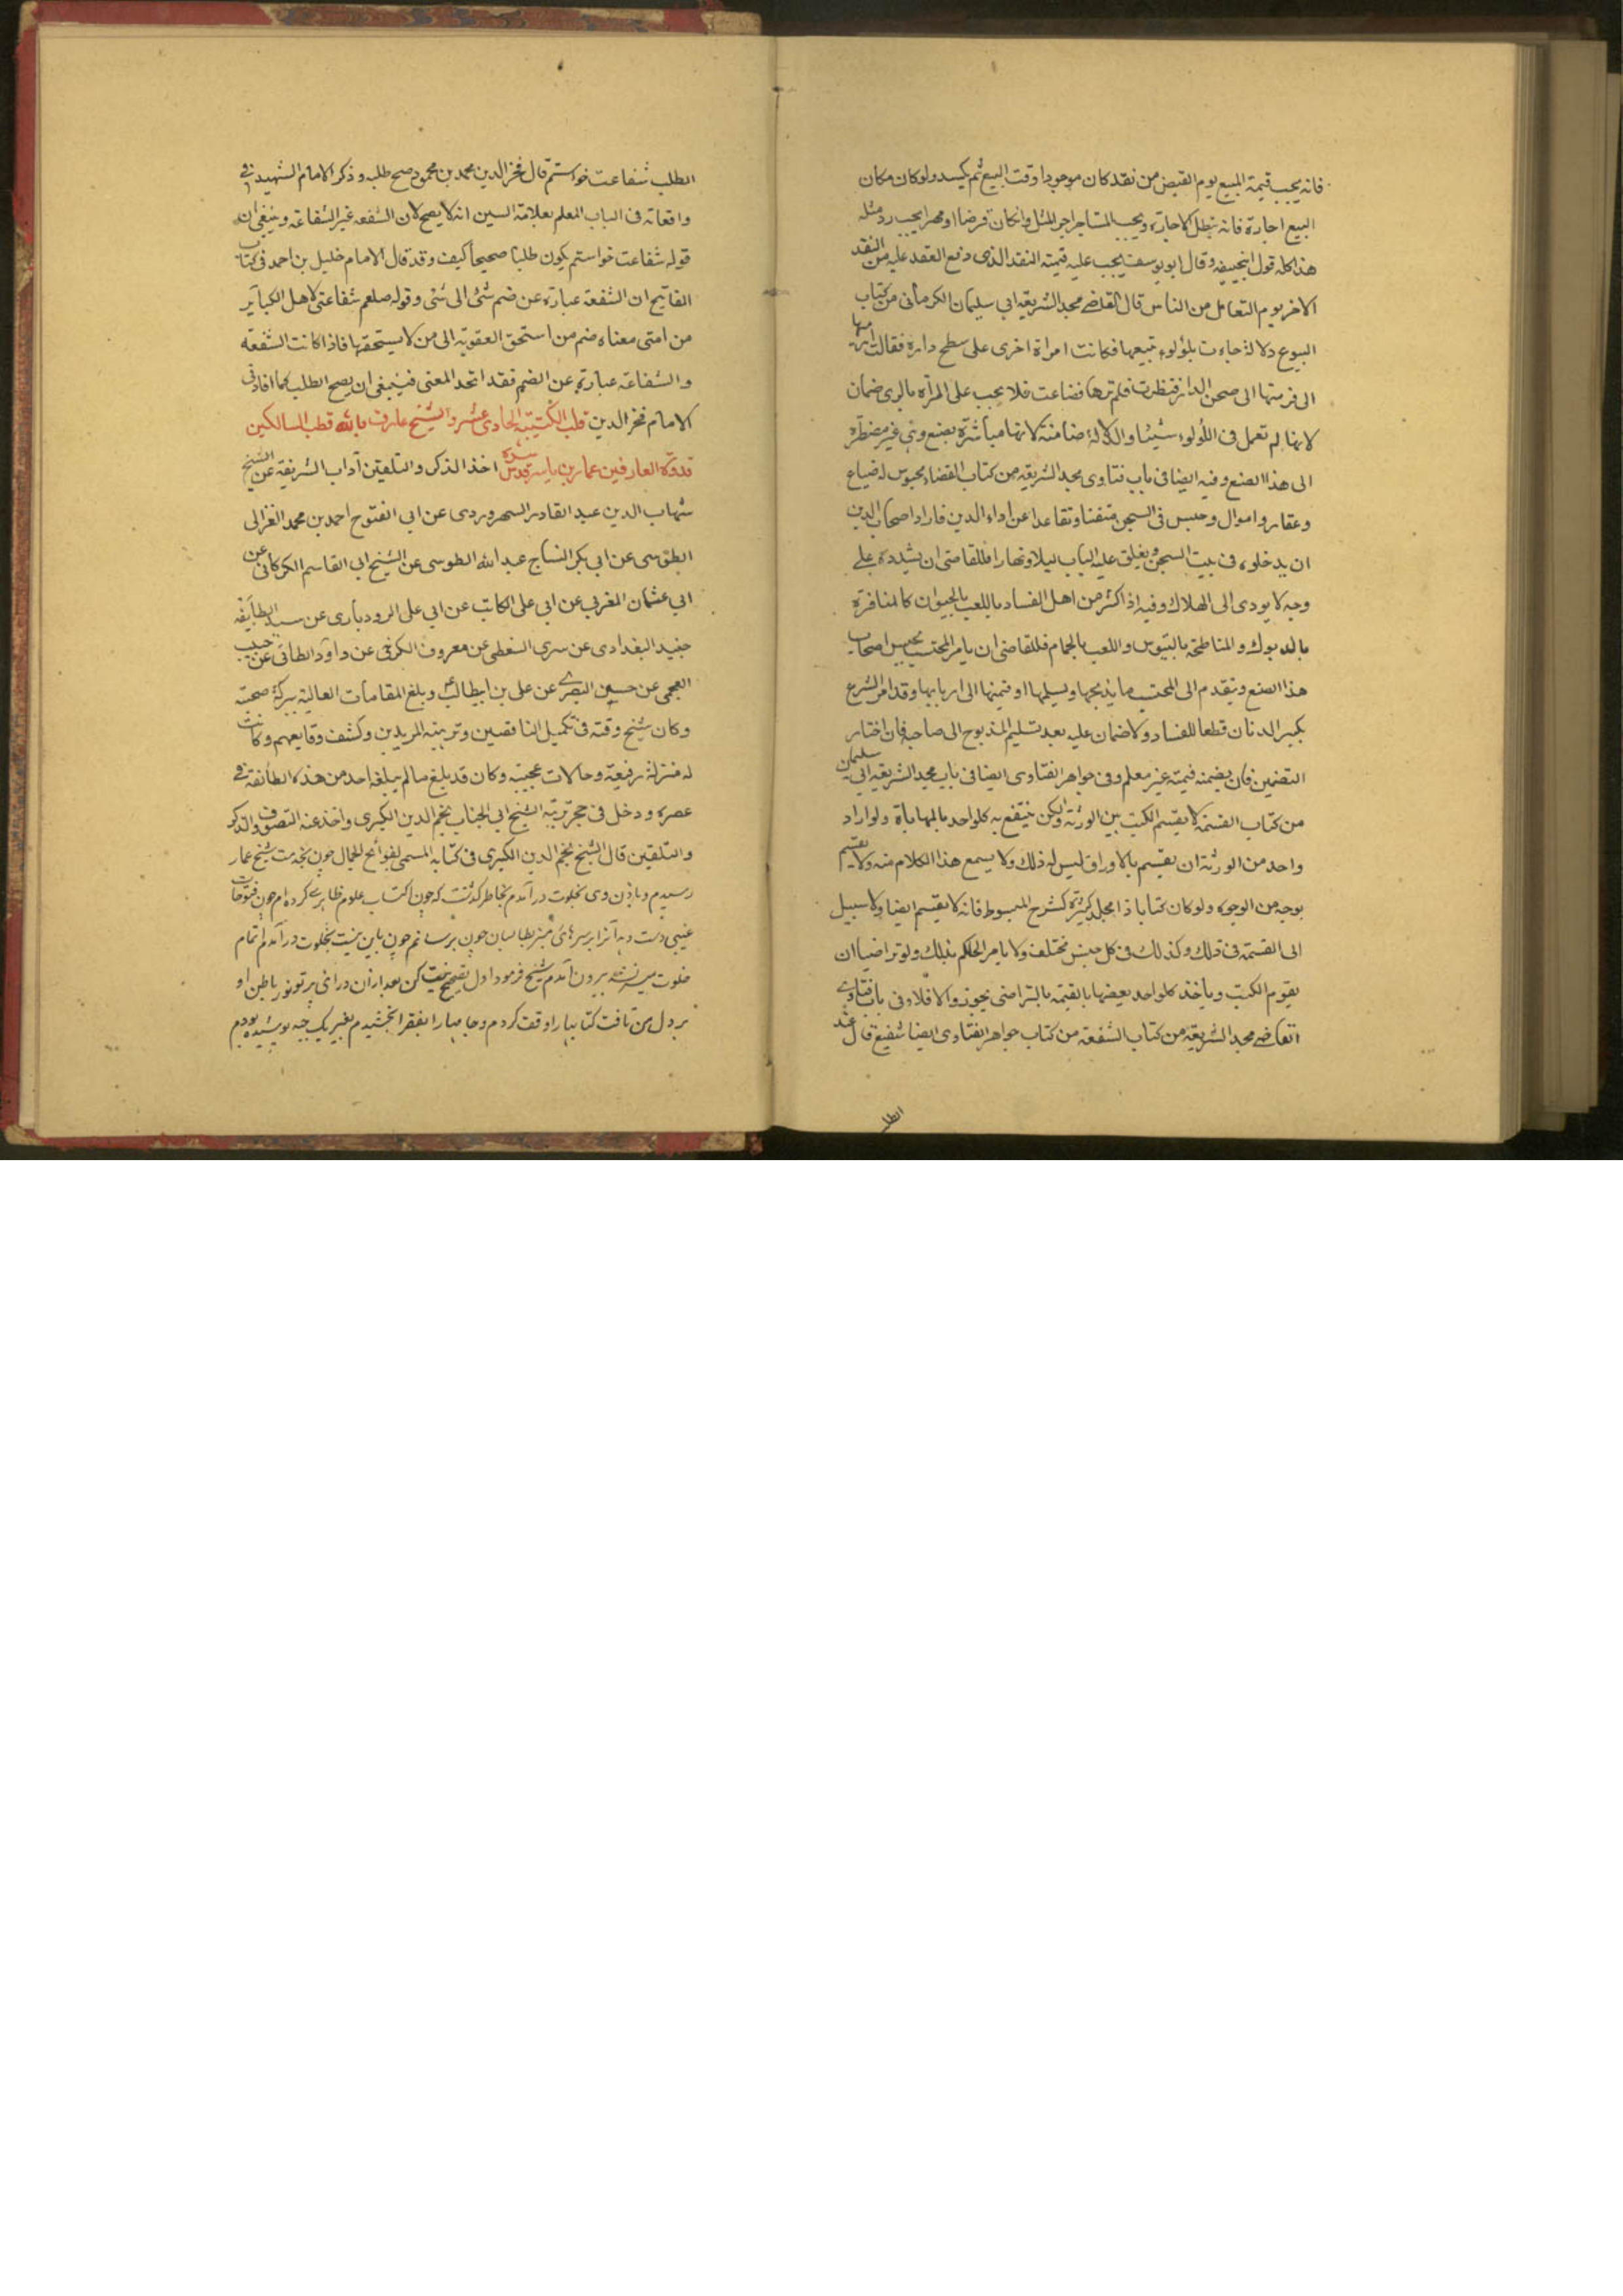 فانه يجب قيمة المبيع يوم القبض من نقد كان موجودا وقت البيع ثم كسد ولو كان مكان
البيع اجارة فانه تبطل الاجارة ويجب المستاجر اجر المثل وان كان قرضا او مهرا يجب رد مثله
هذا كله قول ابيحنيفه وقال ابو يوسف يجب عليه قيمة النقد الذى وقع العقد عليه من النقد
الاخر يوم التعامل من الناس قال القاضے مجد الشريعة ابي سليمان الكرمانى من كتاب
البيوع دلالة جاءت بلؤلوء تبيعها فكانت امراة اخرى على سطح دارة فقالت ارمها
الى فرمتها الى صحن الدار فنظرت فلم ترها فضاعت فلا يجب على المرأة بالرى ضمان
لانها لم تعمل فى اللؤلوء شيئا والدلالة ضامنة لانها مباشرة بصنع وهى غير مضطرة
الى هذا الصنع وفيه ايضا فى باب فتاوى مجد الشريعه من كتاب القضاء محبوس له ضياع
وعقار واموال وحبس فى السجن متفننا وتقاعدا عن اداء الدين فاراد اصحاب الدين
ان يدخلوه فى بيت السجن ويغلق عليه الباب ليلا ونهارا فللقاضى ان يشدده على
وجه لا يودى الى الهلاك وفيه اذا كثر من اهل الفساد باللعب بالحيوان كالمنافرة
بالديوك والمناطحة بالتيوس واللعب بالحمام فللقاضى ان يامر المحتسب بحبس اصحاب
هذا الصنع ويتقدم الى المحتسب ما يذبحها ويسلمها او قيمتها الى اربابها وقد امر الشرع
بكسر الدنان قطعا للفساد ولا ضمان عليه بعد تسليم المذبوح الى صاحبه فان اختار
التضمين فان يضمنه قيمته غير معلم وفى جواهر الفتاوى ايضا فى باب مجد الشريعه ابي سليمان
من كتاب القسمة لا يقسم الكتب بين الورثة ولكن ينتفع به كل واحد بالمهاياة ولو اراد
واحد من الورثة ان يقسم بالاوراق ليس له ذلك ولا يسمع هذا الكلام منه ولا يقسم
بوجه من الوجوه ولو كان كتابا ذا مجلد كثيرة كشرح المبسوط فانه لا يقسم ايضا ولا سبيل
الى القسمة فى ذلك وكذلك فى كل جنس مختلف ولا يامر الحاكم بذلك ولو تراضيا ان
يقوم الكتب وياخذ كل واحد بعضها بالقيمة بالتراضى يجوز والا فلا وفى باب فتاوى
القاضے مجد الشريعة من كتاب الشفعة من كتاب جواهر الفتاوى ايضا شفيع قال عند
الطلب
الطلب شفاعت خواستم قال فخر الدين محمد بن محمود صح طلبه وذكر الامام الشهيد فى
واقعاته فى الباب المعلم بعلامة السين انه لا يصح لان الشفعه غير الشفاعة وينبغى ان
قوله شفاعت خواستم يكون طلبا صحيحا كيف وقد قال الامام خليل بن احمد فى كتاب
الفاتيح ان الشفعة عبارة عن ضم شئ الى شئ وقوله صلعم شفاعتى لاهل الكبآئر
من امتى معناه ضم من استحق العقوبة الى من لا يستحقها فاذا كانت الشفعة
والشفاعة عبارة عن الضم فقد اتحد المعنى فينبغى ان يصح الطلب كما افاد فى
الامام فخر الدين قلب الكتيبة الحادى عشر والشيخ عارف بالله قطب السالكين
قدوة العارفين عمار بن ياسر قدس سره اخذ الذكر والتلقين آداب الشريفة عن الشيخ
شهاب الدين عبد القادر السهروردى عن ابي الفتوح احمد بن محمد الغزالى
الطوسى عن ابي بكر النساج عبد الله الطوسى عن الشيخ ابي القاسم الكركانى عن
ابي عثمان المغربى عن ابي على الكاتب عن ابي على الرودبارى عن سيد الطآيفة
جنيد البغدادى عن سرى السقطى عن معروف الكرخى عن داود الطائى عن حبيب
العجمى عن حسين البصرے عن على بن ابيطالب وبلغ المقامات العالية ببركة صحبته
وكان شيخ وقته فى تكميل الناقصين وتربية المريدين وكشف وقايعهم وكانت
له منزلة رفيعة وحالات عجيبه وكان قد بلغ ما لم يبلغه احد من هذه الطائفة فى
عصره ودخل فى حجر تربيته الشيخ ابي الجناب نجم الدين الكبرى واخذ عنه التصوف والذكر
والتلقين قال الشيخ نجم الدين الكبرى فى كتابه المسمى لفوائح الجمال چون بخدمت شيخ عمار
رسيدم وباذن وى بخلوت درآمدم بخاطر گذشت كه چون اكتساب علوم ظاهرے كرده ام چون فتوحات
غيبى دست دهد آنرا بر سرهاى منبر بطالبان چون برسانم چون باين نيت بخلوت درآمدم اتمام
خلوت ميسر نشد بيرون آمدم شيخ فرمود اول تصحيح نيت كن بعد ازان درآئى پرتو نور باطن او
بر دل من تافت كتابها را وقف كردم وجامها را بفقرا بخشيدم بغير يك جبه پوشيده بودم